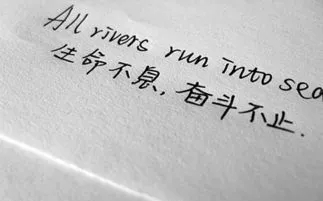 All rivers run into sea
生命不息,奋斗不止.